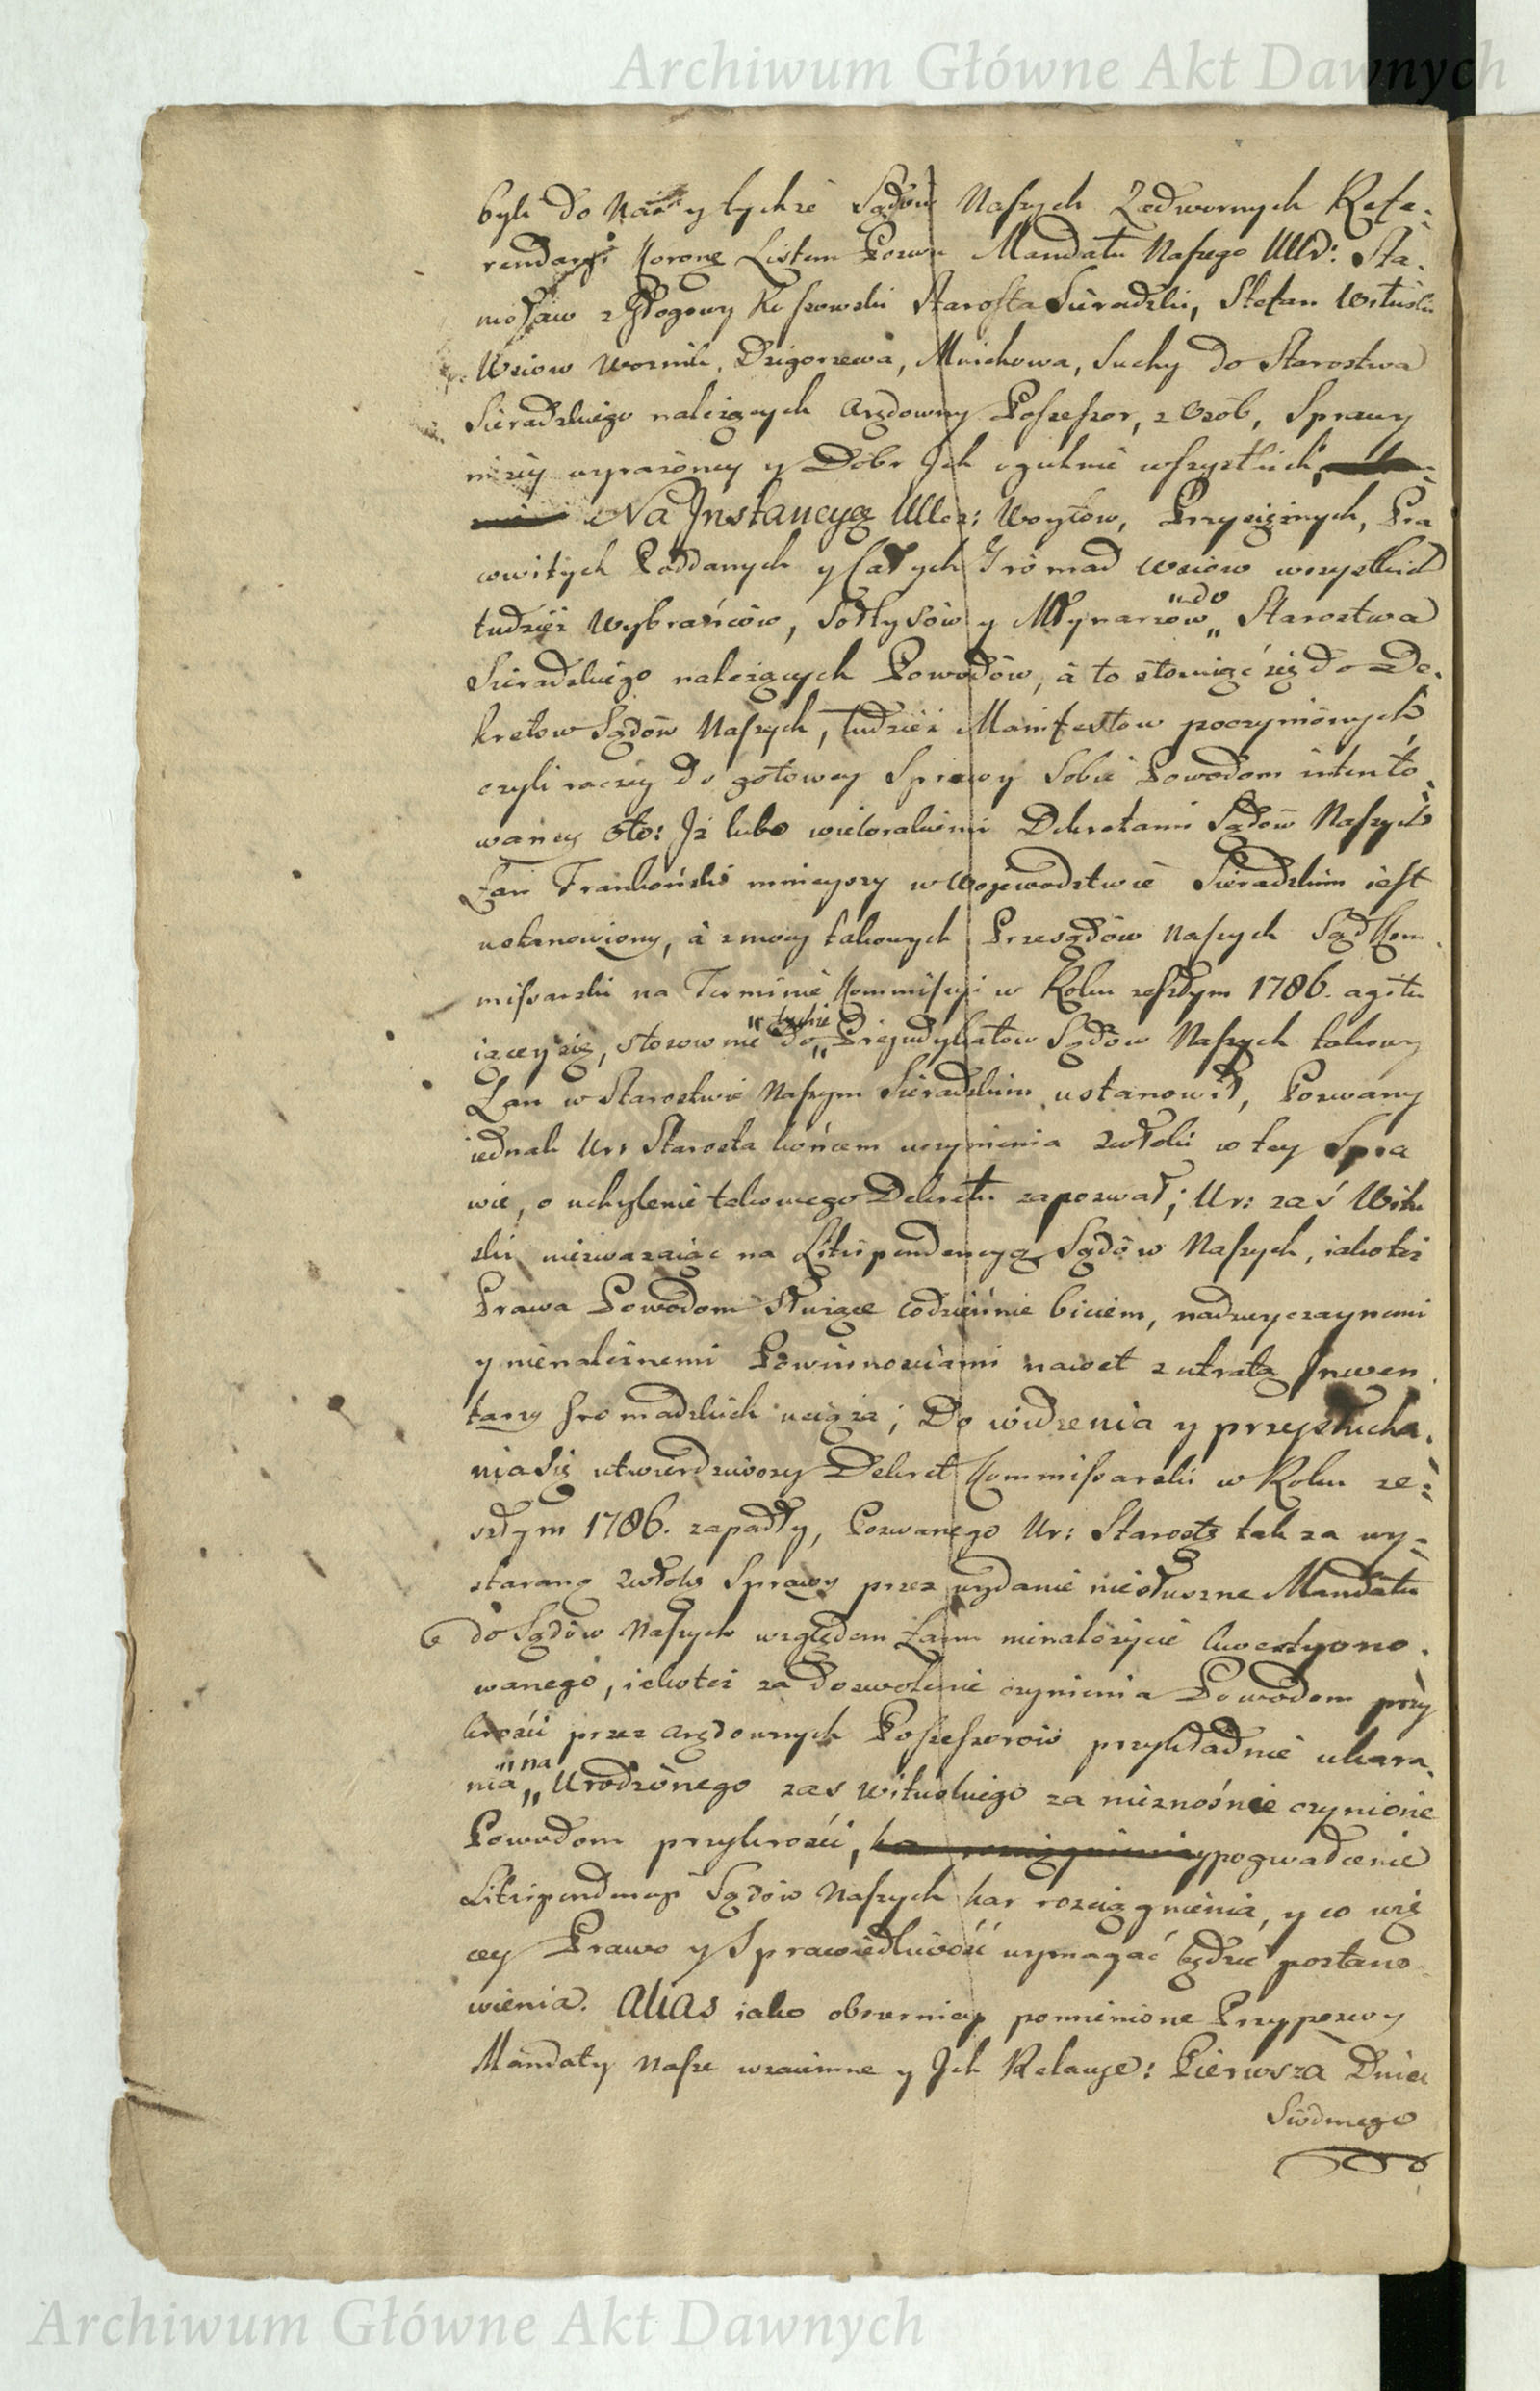 Archiwum Główne Akt Dawnych
byli do Nas y tychże Sądow Naszych Zadwornych Refe-
rendarys Koronę Listem Pozwu Mandatu Naszego UUr: Sta-
nisław z Głogowy Kossowski Starosta Sieradzki, Stefan Wituski
Wsiow Woznik, Dzigorzewa, Mnichowa, Suchy do Starostwa
Sieradzkiego należących Arędowny Possessor, z Osób, Sprawy
niżey wyrażoney y Dobr Jch ogulnie wszystkich,
Na Jnstancyą UUcz: Woytow, Przysiężnych, Pra
cowitych Poddanych y Całych Gromad Wsiow wszystkich
tudzież Wybrańców, Sołtysów y Młynarzów „do„ Starostwa
Sieradzkiego należących Powodów, à to stosuiąć się do De-
kretow Sądów Naszych, tudzież Manifestow poczynionych
czyli raczey do gotowey Sprawy Sobie Powodom intento-
waney Oto: Jż lubo wielorakiemi Dekretami Sądów Naszych
Łan Frankoński mnieyszy w Wojewodztwie Sieradzkim iest
ustanowiony, à z mocy takowych Przesądów Naszych Sąd Kom-
missarski na Terminie Kommissyi w Roku zeszłym 1786. agitu
iącey się, stosownie do „tychże„ Prejudykatow Sądów Naszych takowy
Łan w Starostwie Naszym Sieradzkim ustanowił, Pozwany
iednak Ur: Starosta końcem uczynienia zwłoki w tey Spra
wie, o uchylenie takowego Dekretu zapozwał; Ur: zaś Witu
ski niezwazaiąc na Litispendencyą Sądów Naszych, iakoteż
Prawa Powodom służące codziennie biciem, nadzwyczaynemi
y nienależnemi Powinnosciami nawet z utratą Jnwen-
tarzy Gromadzkich uciąża; Do widzenia y przysłucha-
nia Się utwierdzaiący Dekret Kommissarski w Roku ze-
szłym 1786. zapadły, Pozwanego Ur: Starostę tak za wy-
staraną zwłokę Sprawy przez wydanie niesłuszne Mandatu
do Sądów Naszych względem Łanu nienależycie kwestyono-
wanego, iakoteż za dozwolenie czynienia Powodom przy
krości przez Arędownych Possessorow przykładnie ukara-
nia „na„ Urodzonego zas Wituskiego za nieznośnie czynione
Powodom przykrości, y pogwałcenie
Litispendencyi Sądów Naszych kar rozciągnienia, y co wię
cey Prawo y Sprawiedliwość wymagać będzie postano-
wienia. Alias iako obszerniey pomienione Przypozwy
Mandaty Nasze wzaiemne y Jch Relacye: Pierwsza Dnia
Siódmego
Archiwum Główne Akt Dawnych